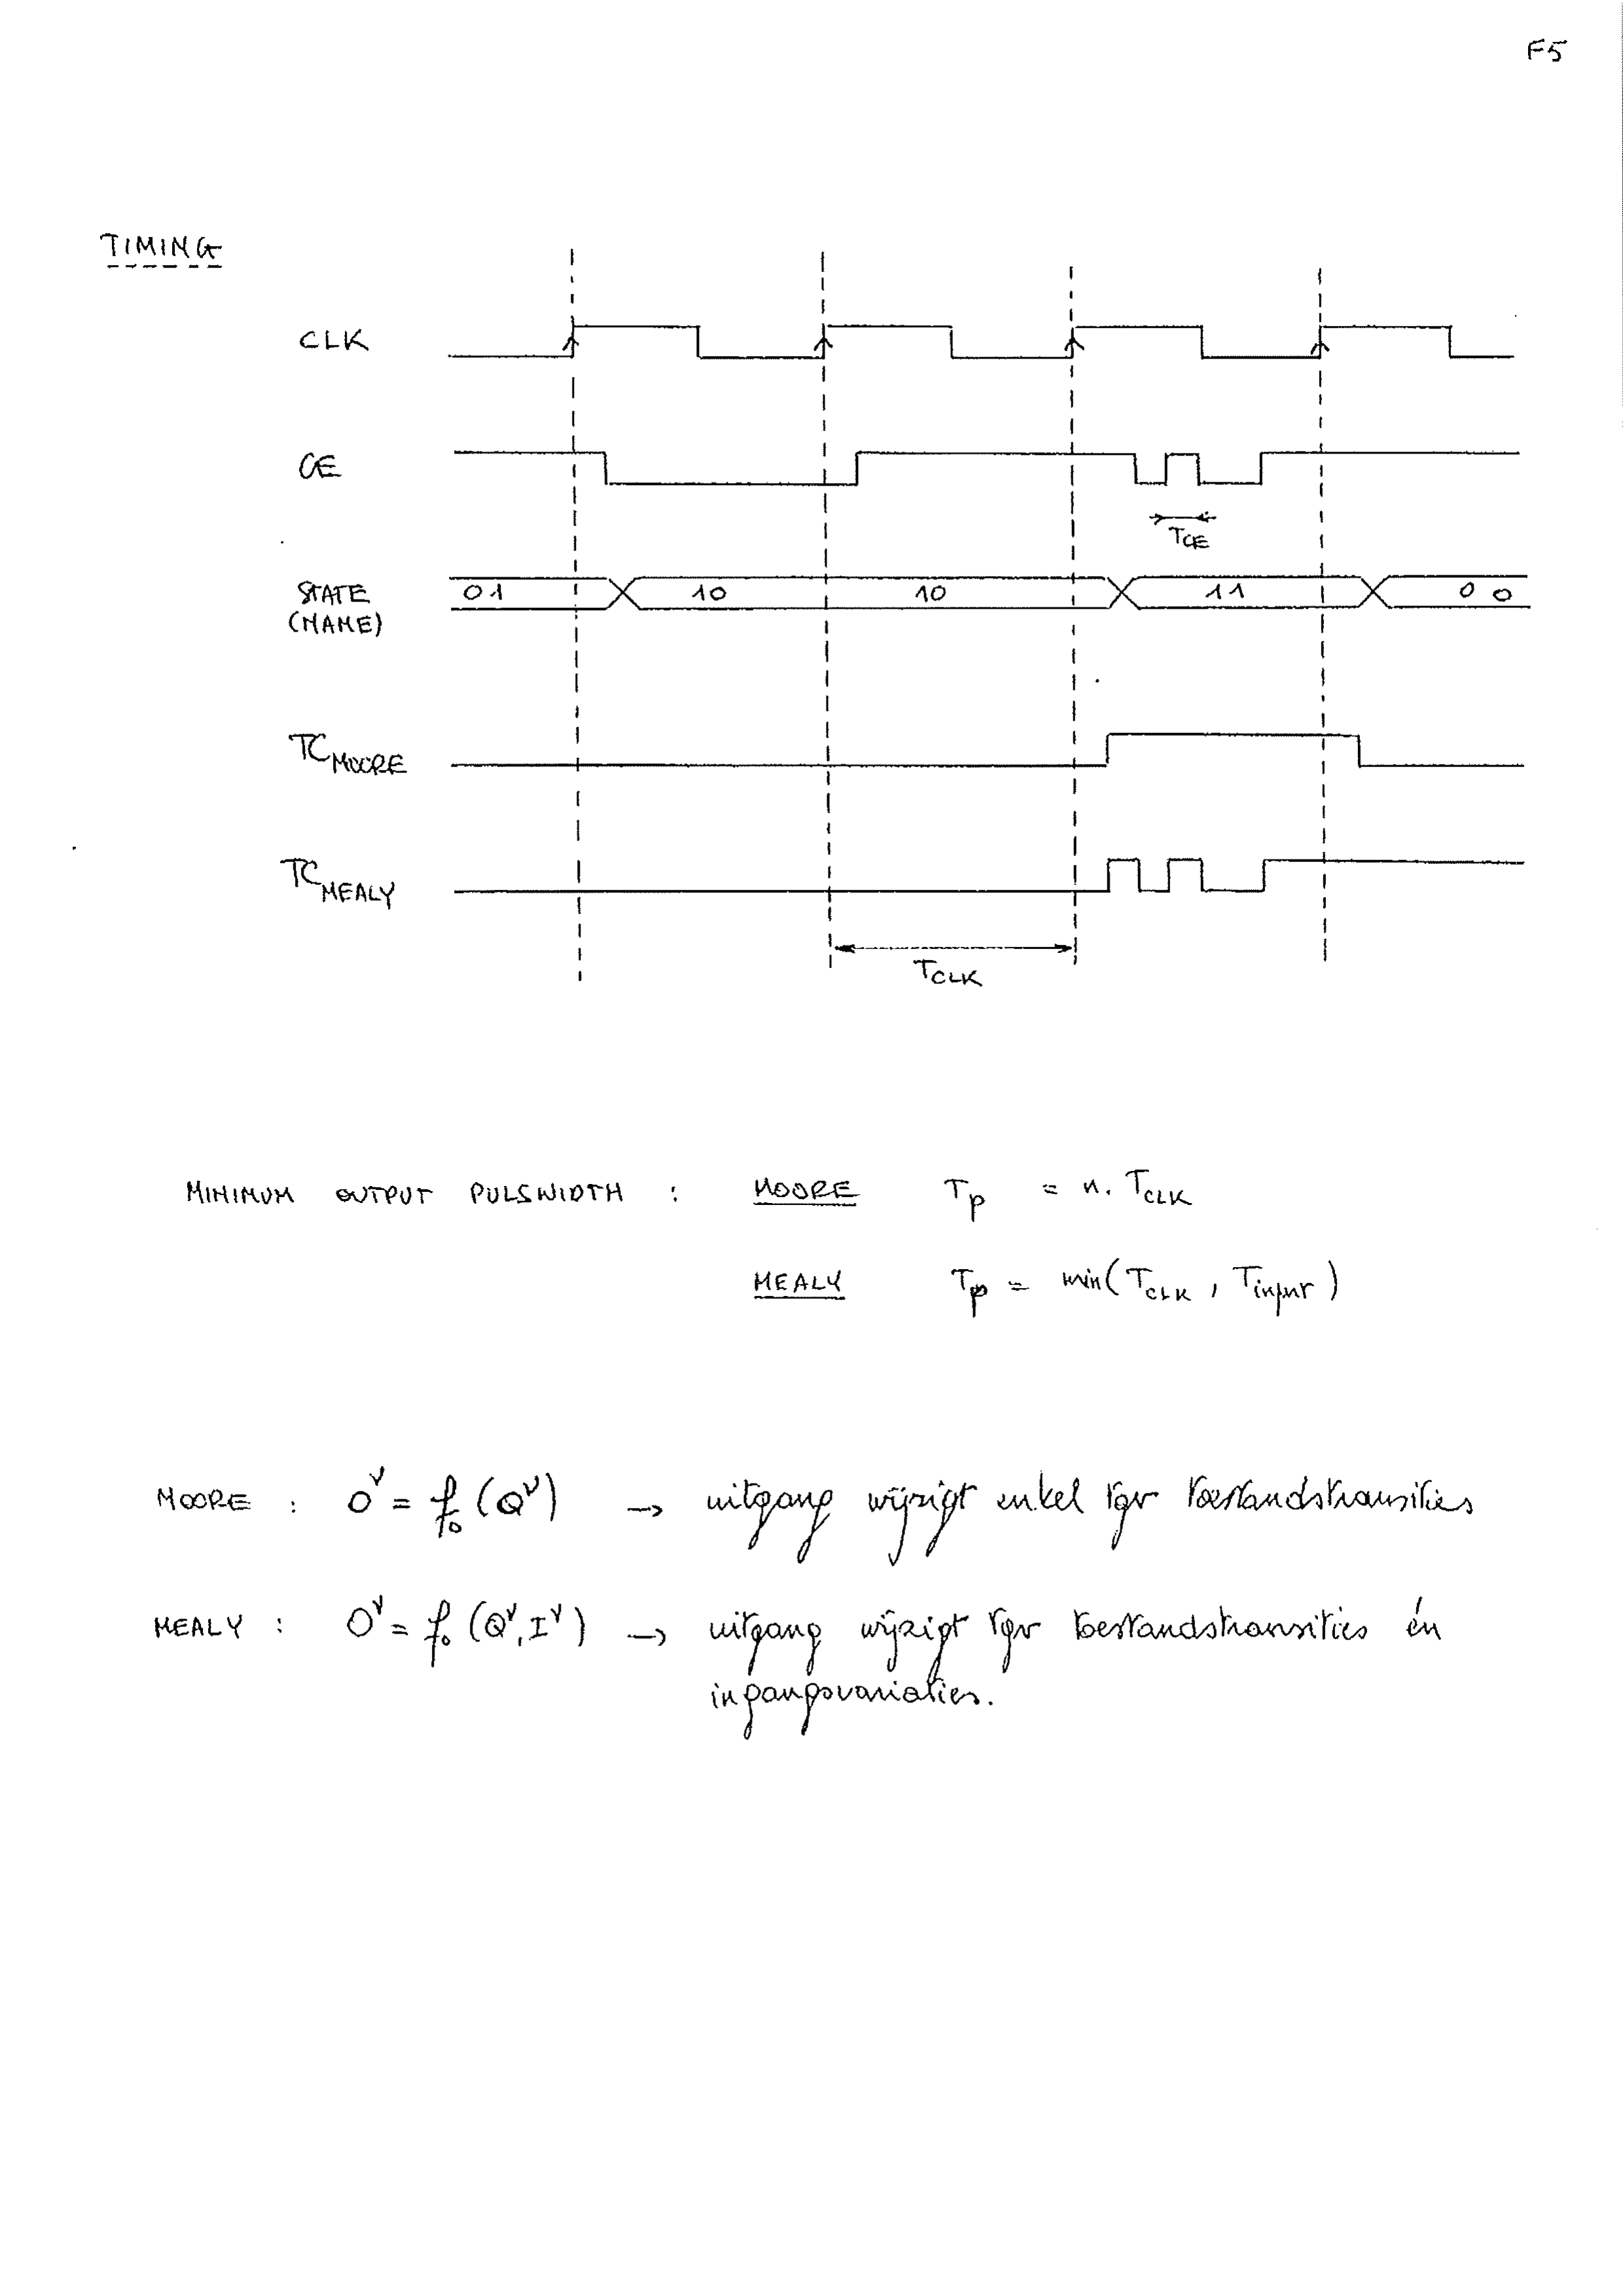 F5
TIMING
CLK
CE
TCE
STATE
(NAME)
01 10 10 11 00
TC MOORE
TC MEALY
TCLK
MINIMUM OUTPUT PULSWIDTH : MOORE Tp = n. TCLK
MEALY Tp = min(TCLK, Tinput)
MOORE : O^ν = f₀ (Q^ν) → uitgang wijzigt enkel tgv toestandstransities
MEALY : O^ν = f₀ (Q^ν, I^ν) → uitgang wijzigt tgv toestandstransities én
ingangsvariaties.